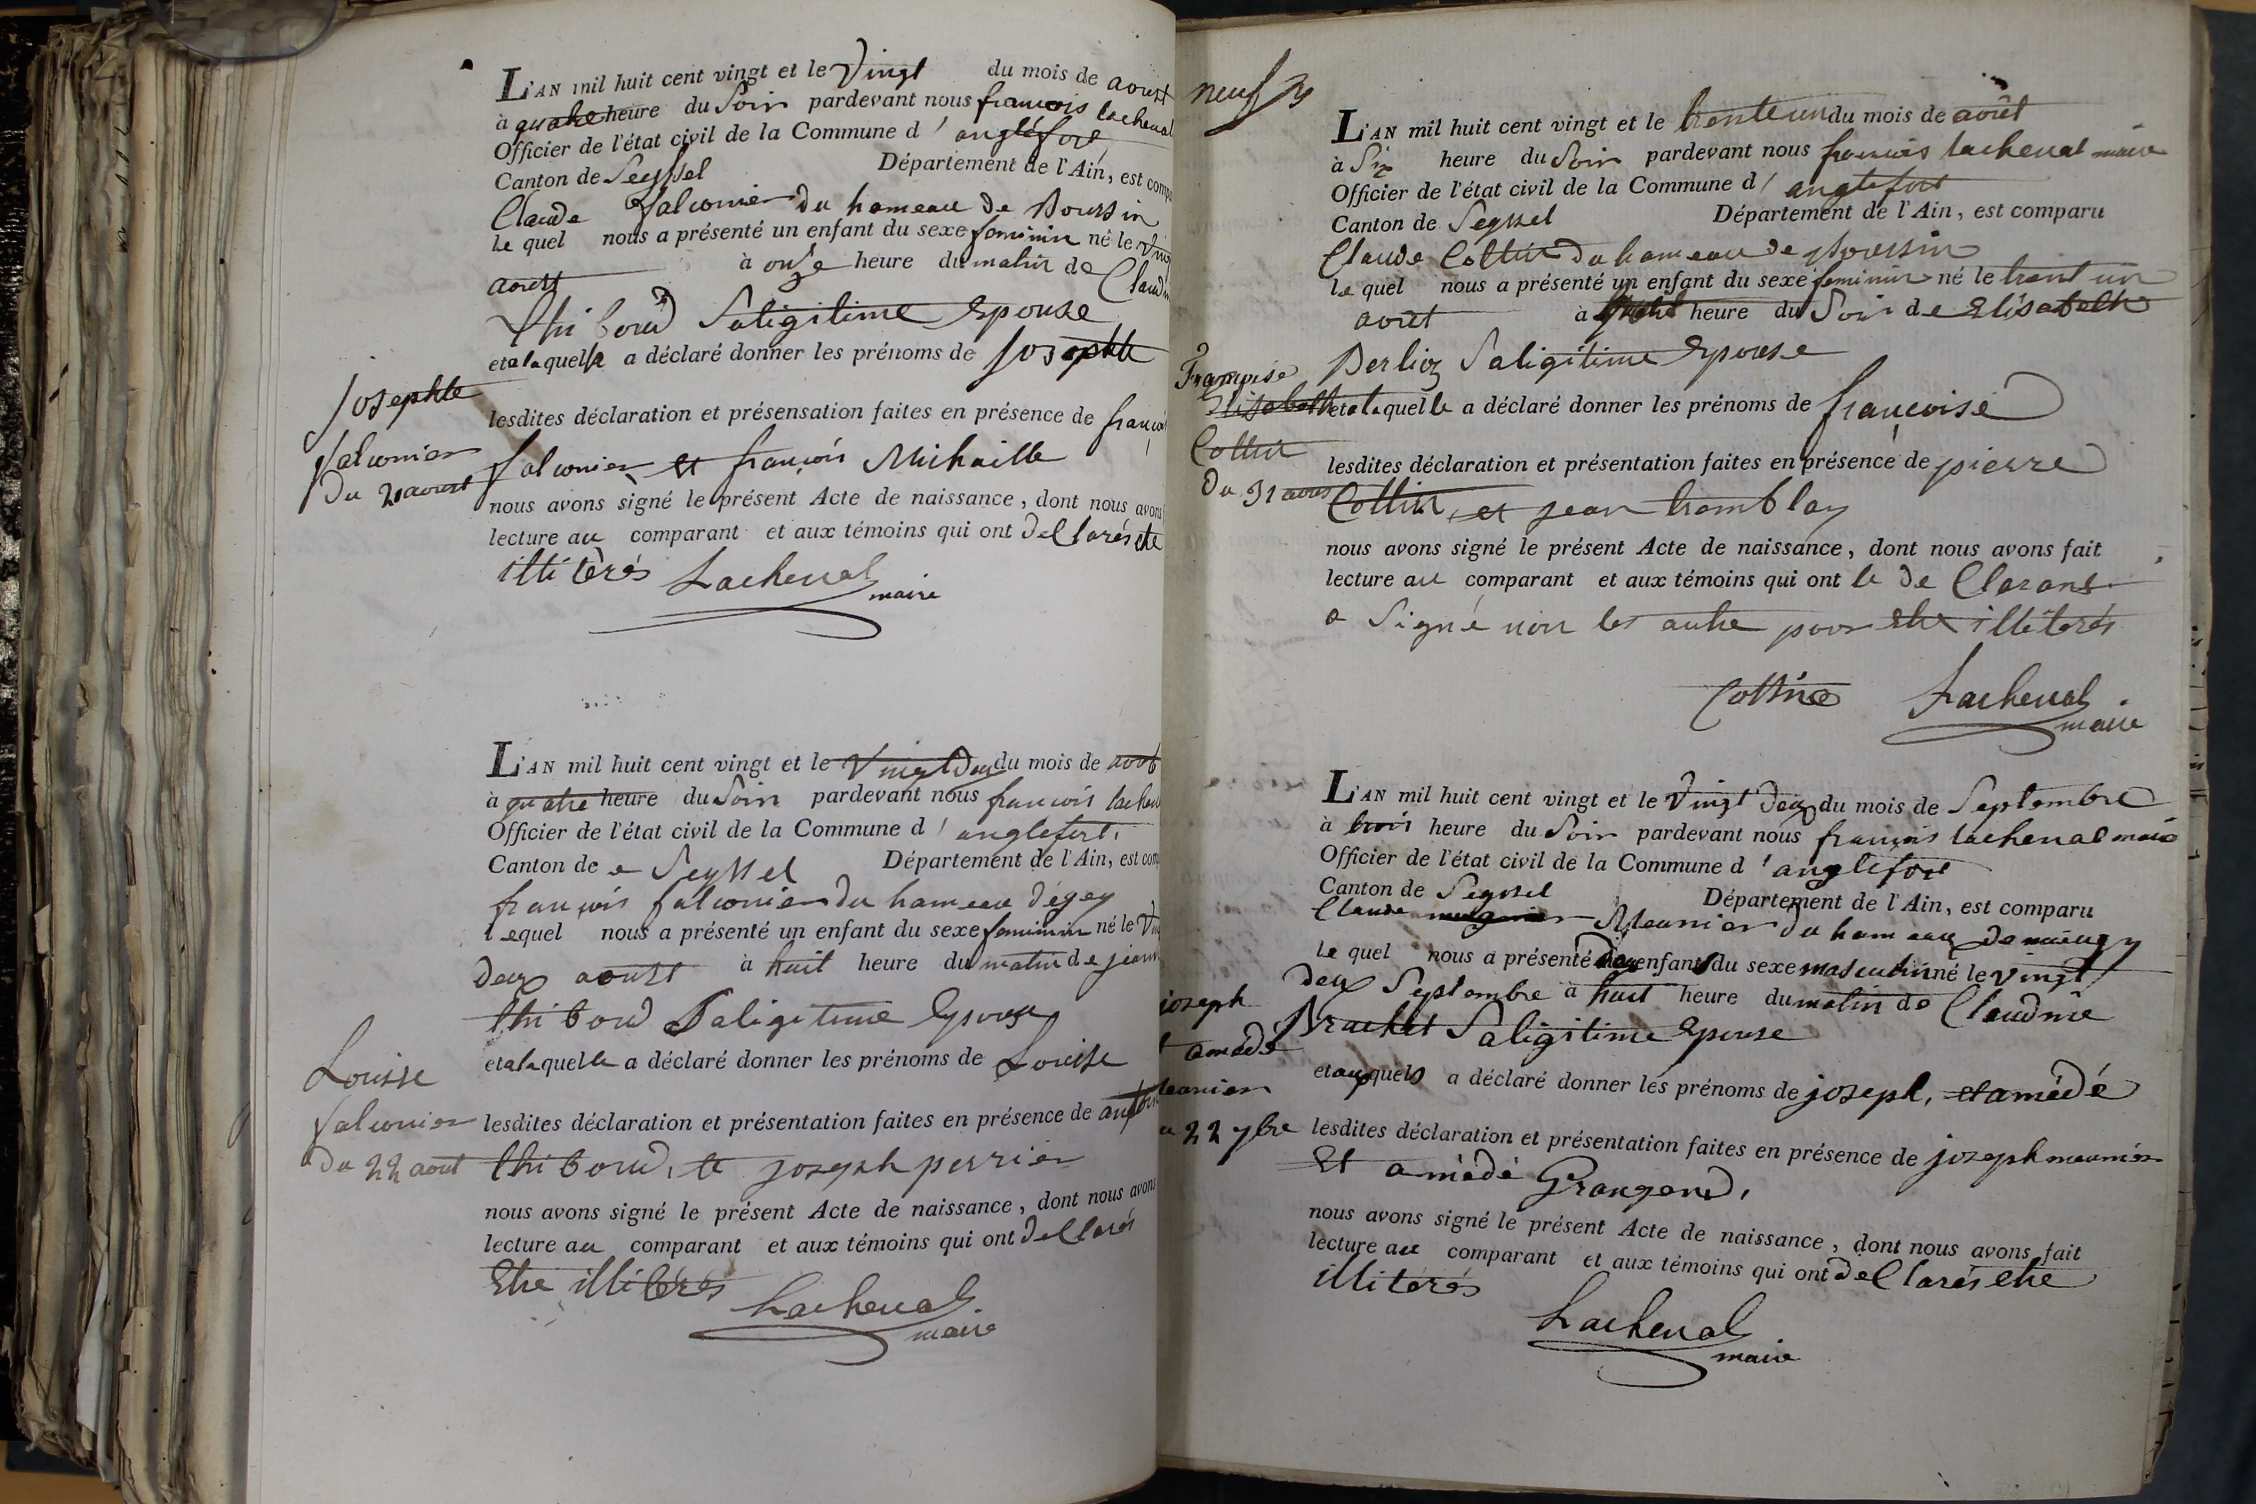 L'AN mil huit cent vingt et le Vingt du mois de aoust
à quatre heure du Soir pardevant nous francois lachenal
Officier de l'état civil de la Commune d'anglefort
Canton de Seyssel Département de l'Ain, est comp
Claude falconier du hameau de Boursin
le quel nous a présenté un enfant du sexe feminin né le vin
aoust à onze heure du matin de Claudi
Thiboud Saligitime Epouse
et a laquelle a déclaré donner les prénoms de Josephte
Josephte
falconier
du 20 aoust
lesdites déclaration et présensation faites en présence de françoi
falconier et françois Michaille
nous avons signé le présent Acte de naissance, dont nous avons
lecture au comparant et aux témoins qui ont dellarés etre
illitérés Lachenal
maire
L'AN mil huit cent vingt et le Vingt deux du mois de aout
à quatre heure du Soir pardevant nous francois lachen
Officier de l'état civil de la Commune d'anglefort,
Canton de Seyssel Département de l'Ain, est com
françois falconier du hameau d'égey
lequel nous a présenté un enfant du sexe feminin né le Vin
deux aoust à huit heure du matin de jeann
thiboud Saligitime Epouse
et a laquelle a déclaré donner les prénoms de Louise
Louisse
falconier
du 22 aout
lesdites déclaration et présentation faites en présence de
thiboud, et joseph perrier
nous avons signé le présent Acte de naissance, dont nous avons
lecture au comparant et aux témoins qui ont dellarés
Etre illitérés
Lachenal
maire
neuf
L'AN mil huit cent vingt et le trente un du mois de août
à Six heure du Soir pardevant nous francois lachenal maire
Officier de l'état civil de la Commune d'anglefort
Canton de Seyssel Département de l'Ain, est comparu
Claude Cottin du hameau de Boursin
le quel nous a présenté un enfant du sexe feminin né le trent un
août à heure du Soir de Elisabeth
Berlioz Saligitime Epouse
Françoise
Elisabeth
Cottin
du 31 aous
et a laquelle a déclaré donner les prénoms de françoise
lesdites déclaration et présentation faites en présence de pierre
Cottin, et jean tremblay
nous avons signé le présent Acte de naissance, dont nous avons fait
lecture au comparant et aux témoins qui ont le de Clarant
a Signé non les autre pour Etre illiterés
Cottin Lachenal
maire
L'AN mil huit cent vingt et le Vingt deux du mois de Septembre
à trois heure du Soir pardevant nous françois lachenal maire
Officier de l'état civil de la Commune d'anglefort
Canton de Seyssel Département de l'Ain, est comparu
Claude Meunier du hameau de
le quel nous a présenté deux enfants du sexe masculin né le vingt
deux Septembre à huit heure du matin de Claudine
Brachet Saligitime Epouse
joseph
t amédé
eunier
u 22 7bre
et auxquels a déclaré donner les prénoms de joseph, et amédé
lesdites déclaration et présentation faites en présence de joseph meunier
Et amédé Grangend,
nous avons signé le présent Acte de naissance, dont nous avons fait
lecture au comparant et aux témoins qui ont dellarés etre
illitérés
Lachenal
maire